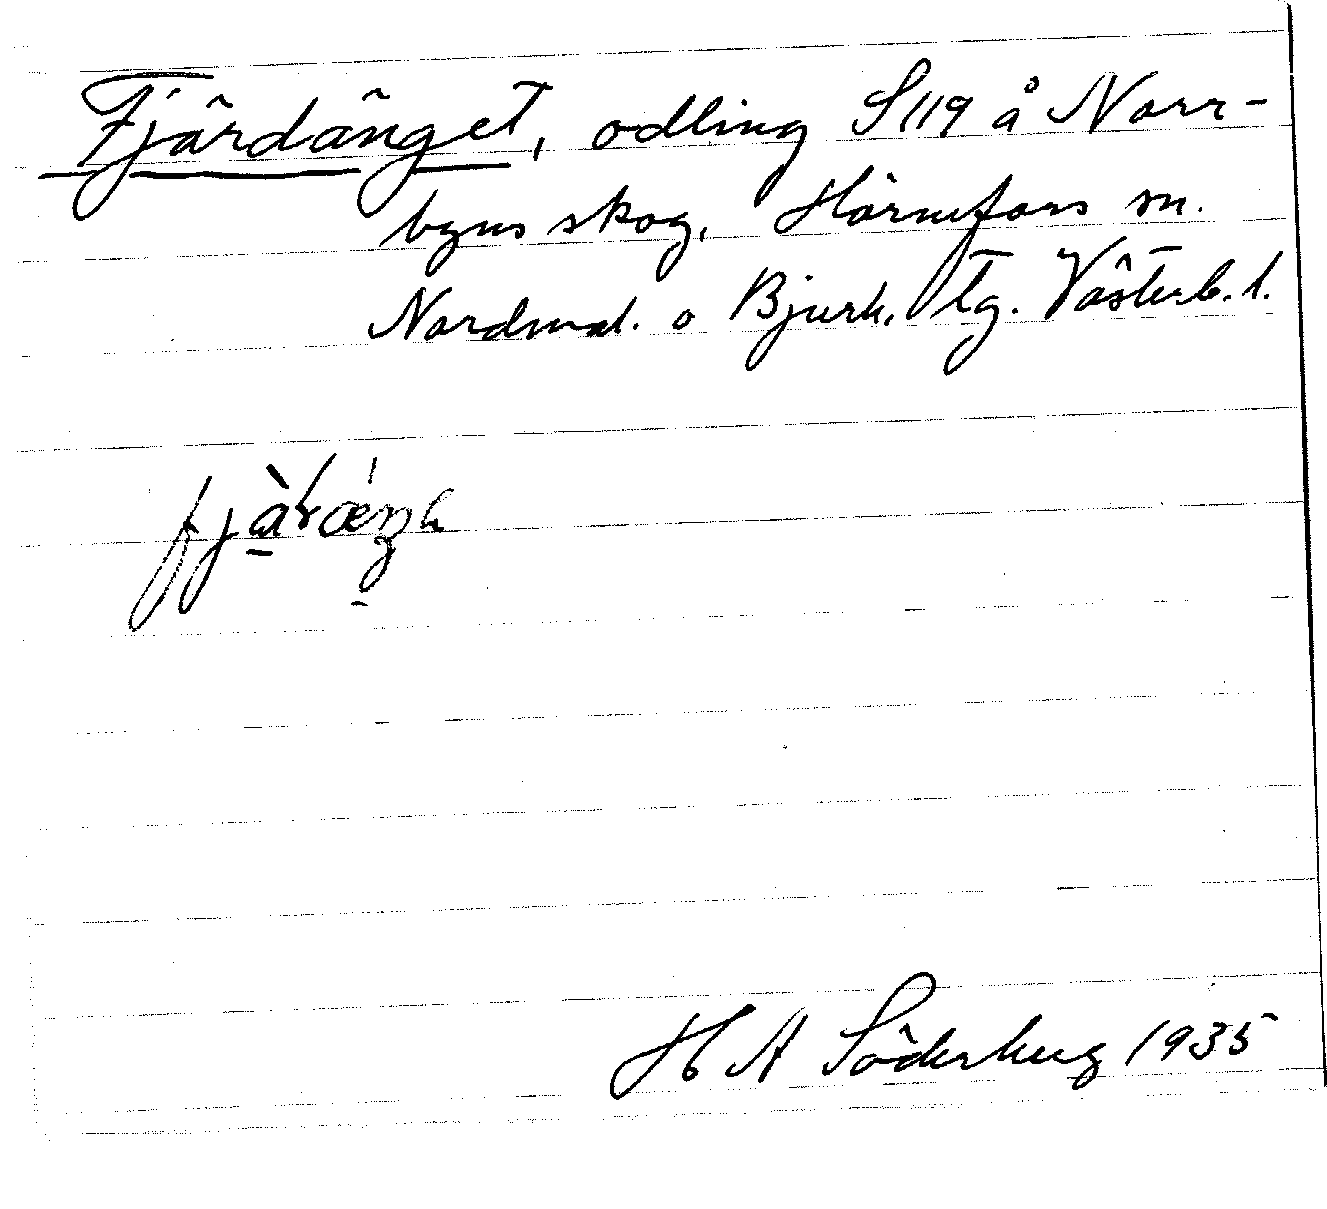 Fjärdänget, odling S119 å Norr-
byns skog, Hörnefors sn.
Nordmal. o Bjurh. tg. Västerb. l.
H A Söderberg 1935